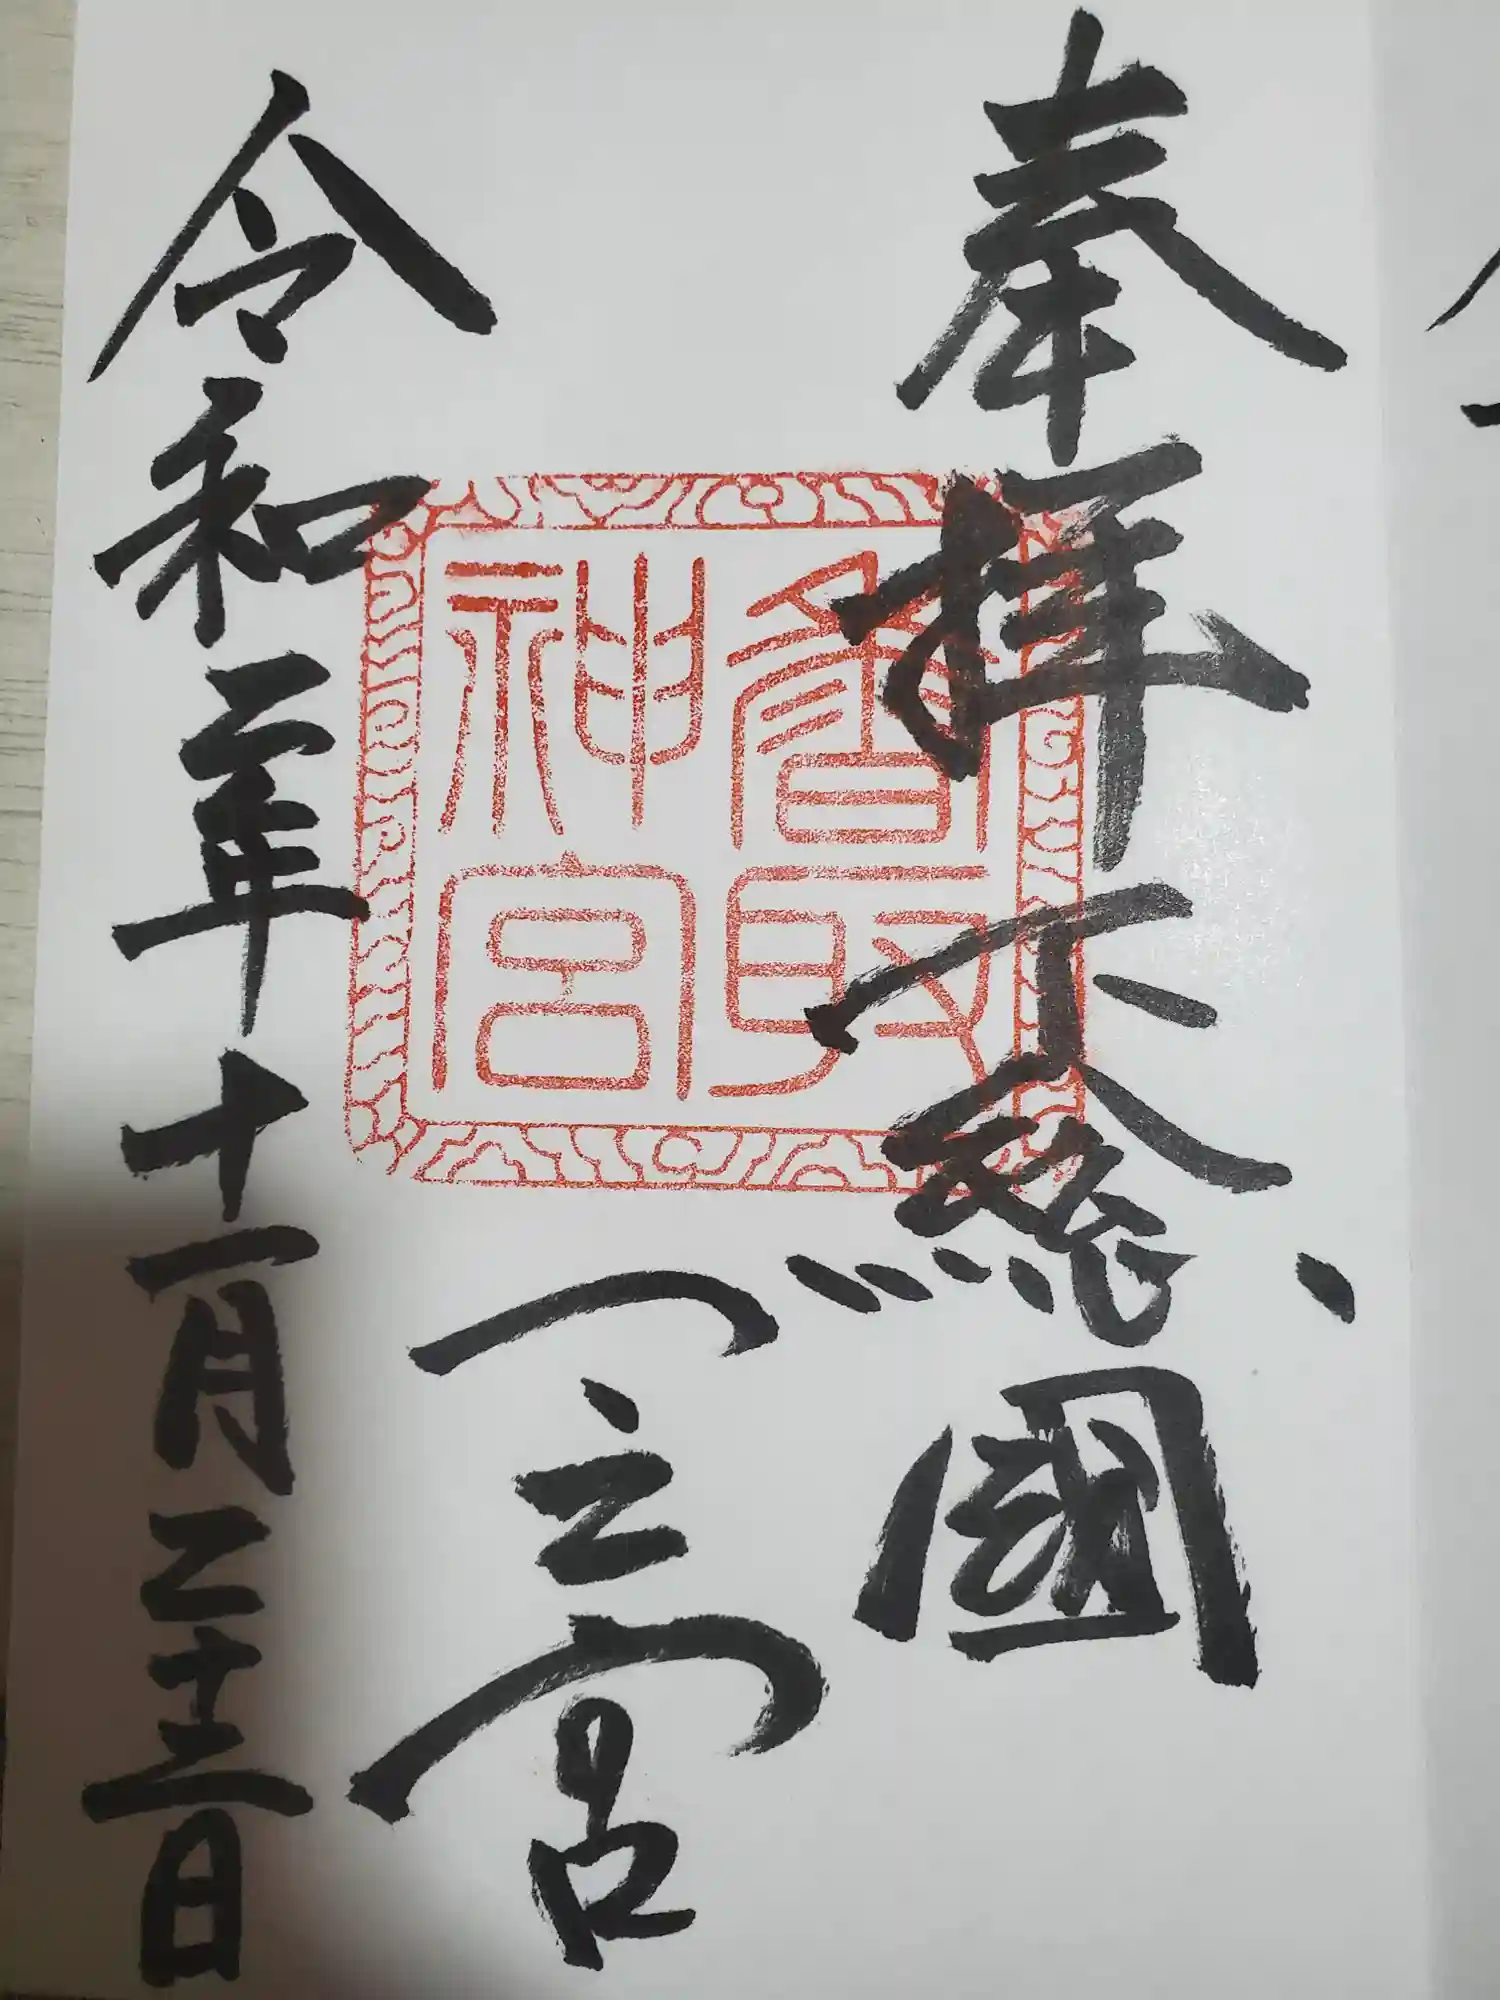 奉拝 下総國
一之宮
令和二年十一月二十二日
香取
神宮